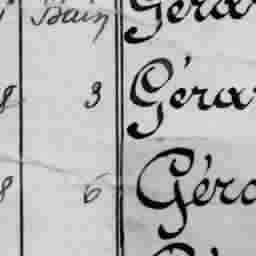 Bain Géra
8 3 Géra
8 6 Géra